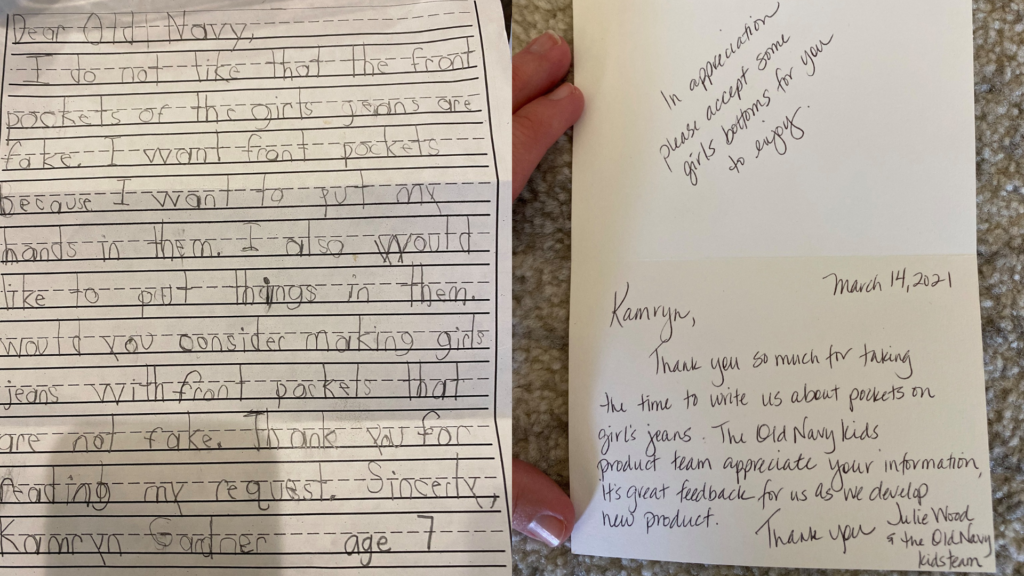 Dear Old Navy,
I do not like that the front
pockets of the girls jeans are
fake. I want front pockets
because I want to put my
hands in them. I also would
like to put things in them.
would you consider making girls
jeans with front pockets that
are not fake. Thank you for
reading my request. Sincerly,
Kamryn Gardner age 7
In appreciation
please accept some
girls bottoms for you
to enjoy.
March 14, 2021
Kamryn,
Thank you so much for taking
the time to write us about pockets on
girl's jeans. The Old Navy kids
product team appreciate your information,
It's great feedback for us as we develop
new product.
Thank you Julie Wood
& the Old Navy
kids team